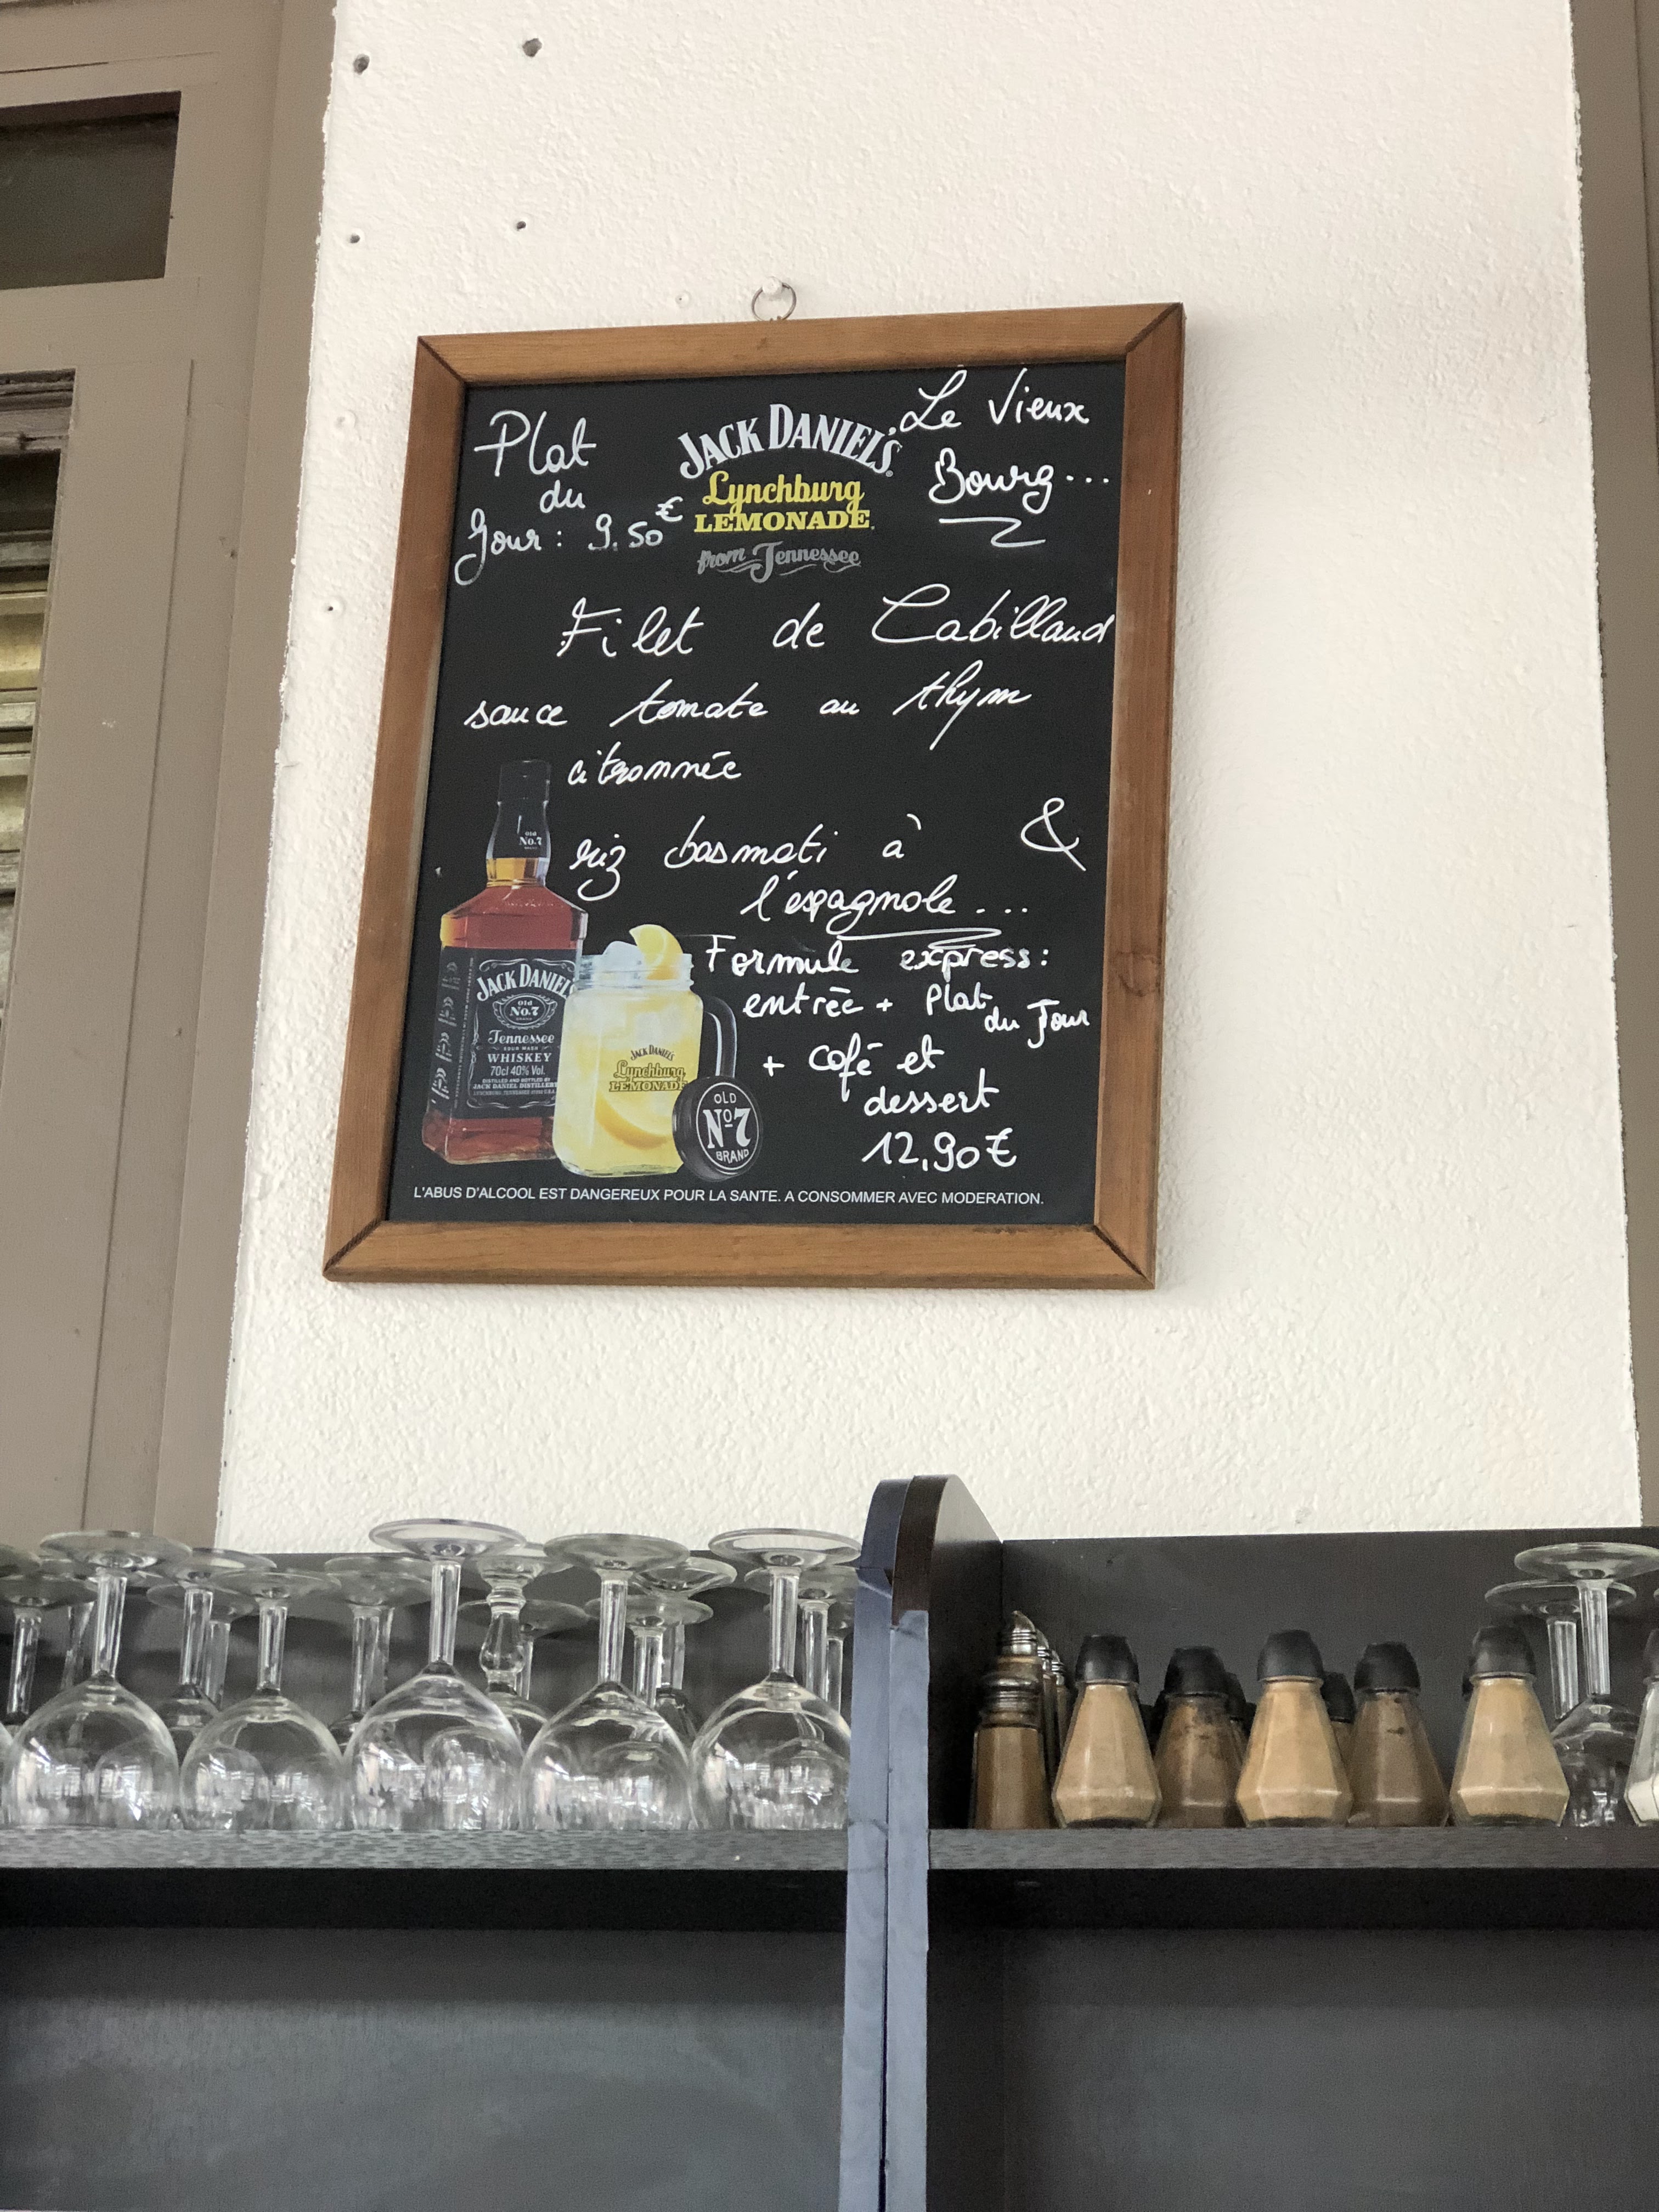 Plat
du
Jour : 9.50€
JACK DANIEL'S
Lynchburg
LEMONADE
from Tennessee
Le Vieux
Bourg...
Filet de Cabillaud
sauce tomate au thym
citronnée
&
riz basmati à
l'espagnole...
Formule express :
entrée + Plat
du Jour
+ café et
dessert
12,90€
OLD
No.7
JACK DANIEL'S
Old
No.7
Tennessee
SOUR MASH
WHISKEY
70cl 40% Vol.
DISTILLED AND BOTTLED BY
JACK DANIEL DISTILLERY
JACK DANIEL'S
Lynchburg
LEMONADE
OLD
No7
BRAND
L'ABUS D'ALCOOL EST DANGEREUX POUR LA SANTE. A CONSOMMER AVEC MODERATION.